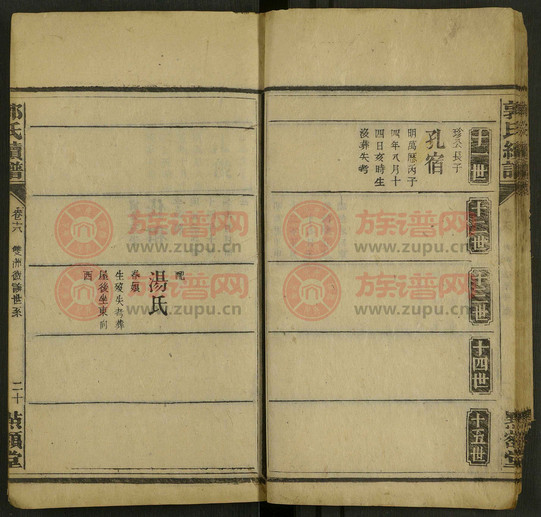 郭氏續譜
十一世
十二世
十三世
十四世
十五世
珍榮長子
孔宿
明萬曆丙子
四年八月十
四日亥時生
沒葬失考
配
湯氏
生歿失考葬
屋後坐東向
西
郭氏續譜
卷十六
世系
二十
堂
族谱网
www.zupu.cn
族谱网
www.zupu.cn
族谱网
www.zupu.cn
族谱网
www.zupu.cn